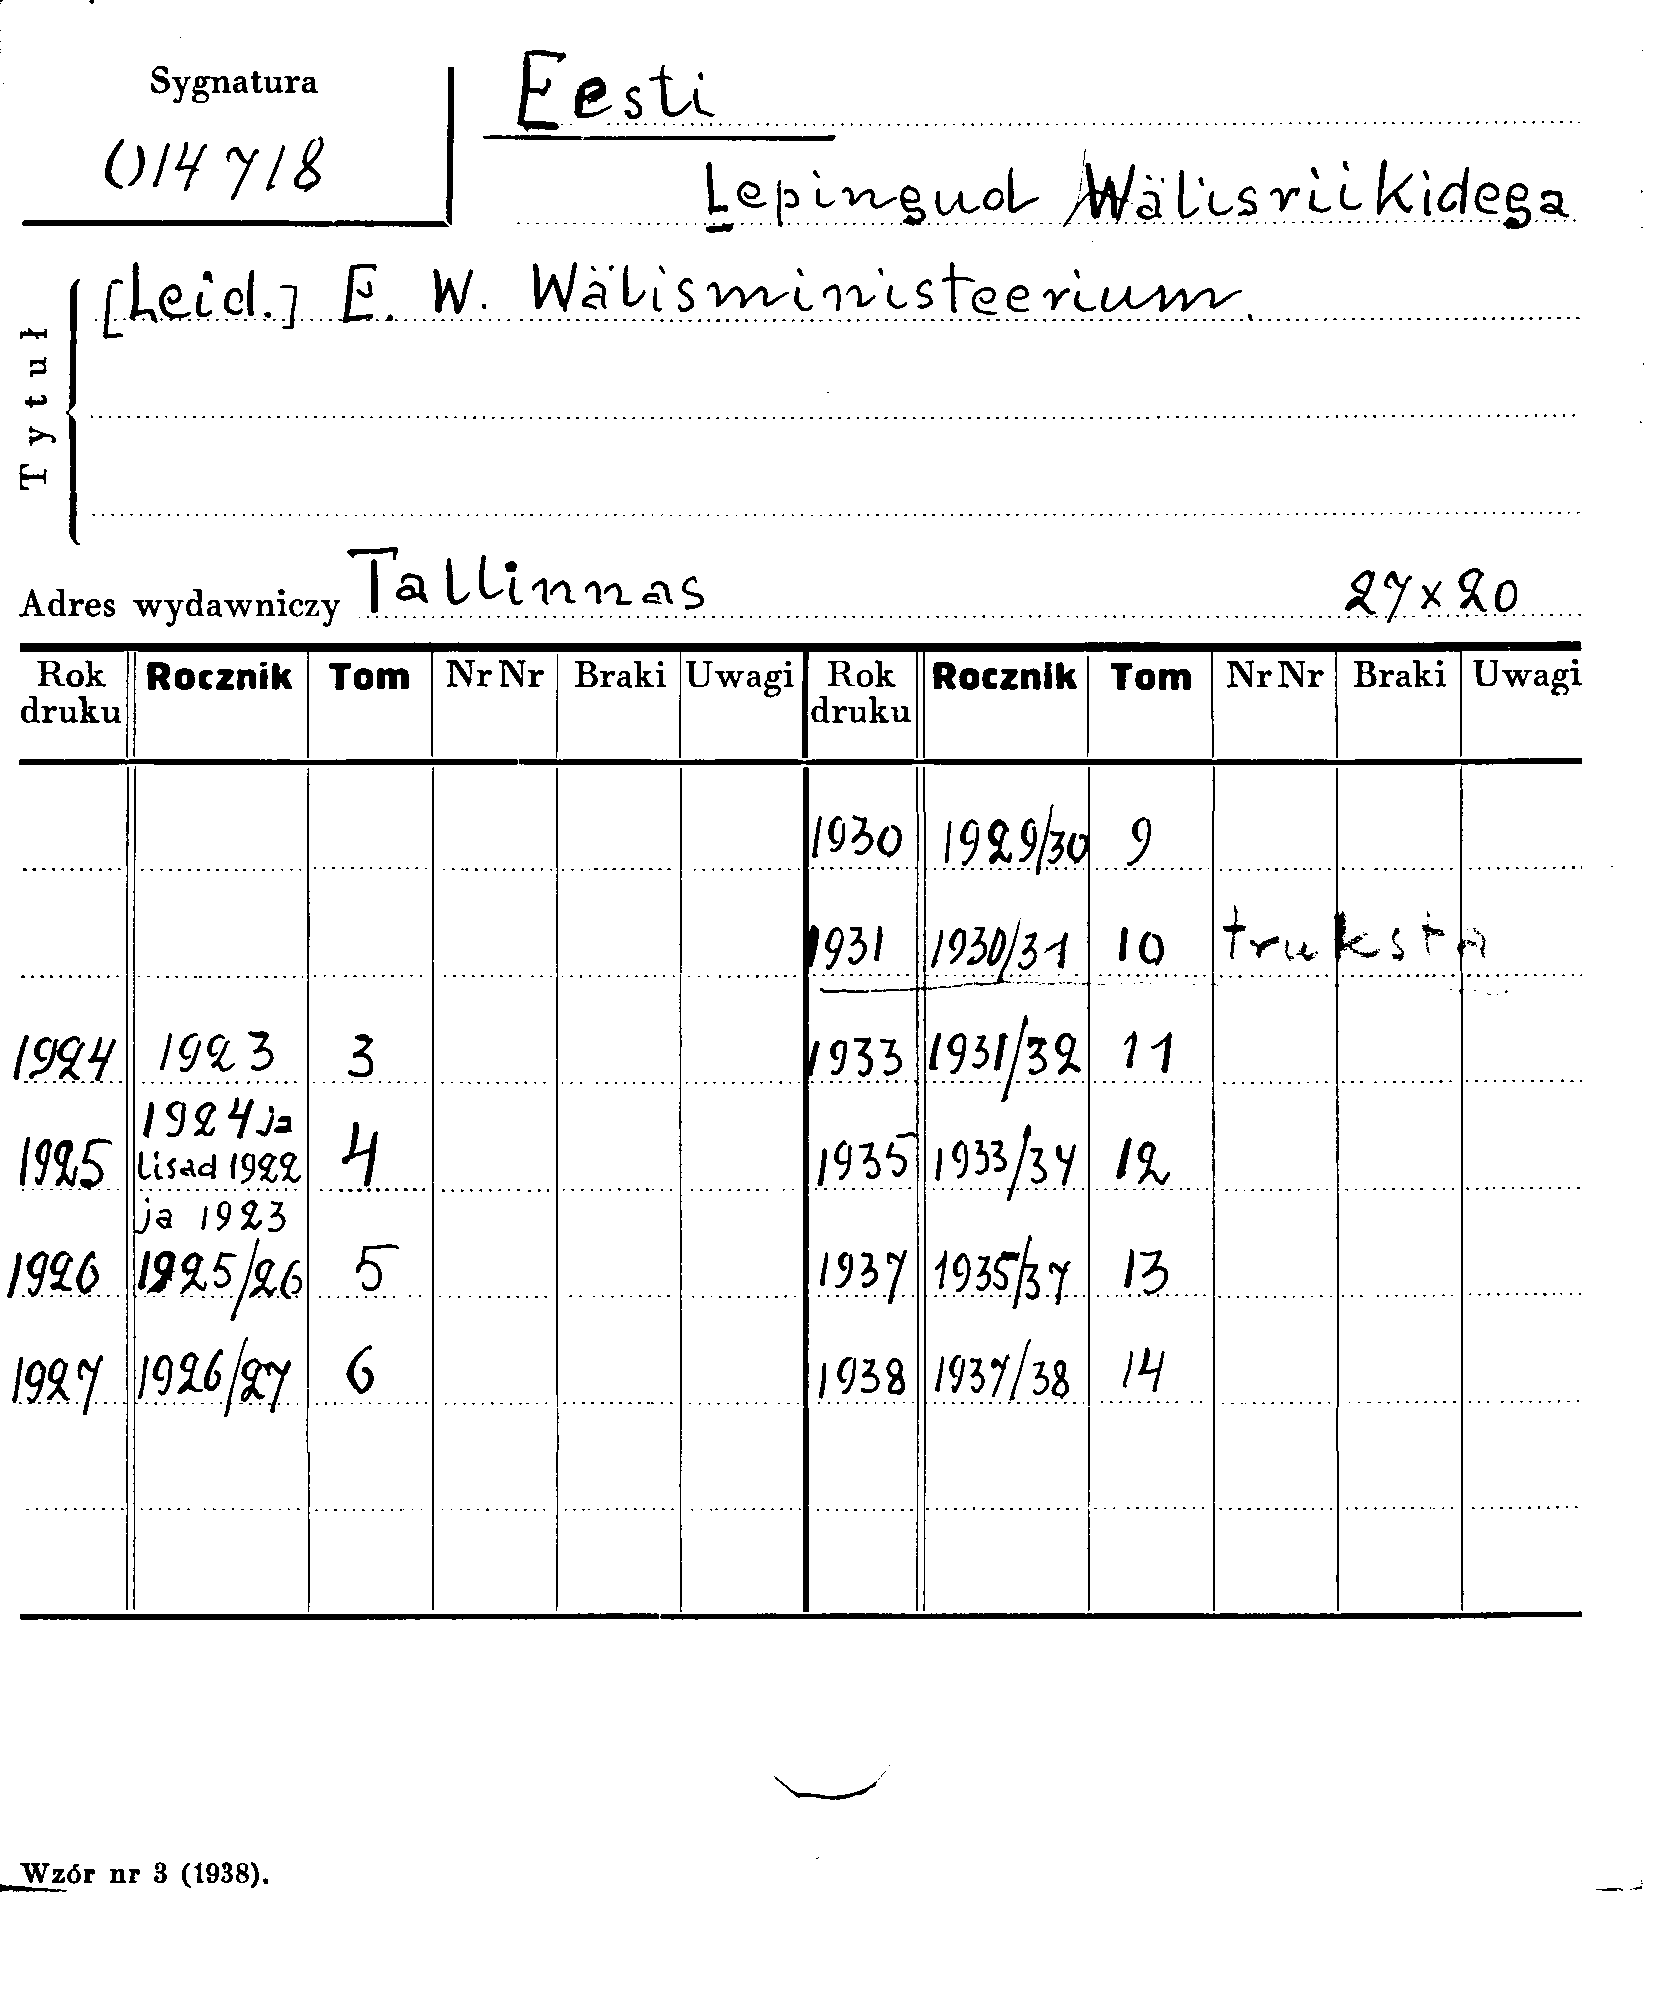 Sygnatura
014718
Eesti
Lepingud Wälisriikidega
Tytuł
[Leid.] E. W. Wälisministeerium.
Adres wydawniczy Tallinnas 27x20
Rok druku Rocznik Tom Nr Nr Braki Uwagi Rok druku Rocznik Tom Nr Nr Braki Uwagi
1930 1929/30 9
1931 1930/31 10 truksta
1924 1923 3 1933 1931/32 11
1925 1924 ja lisad 1922 ja 1923 4 1935 1933/34 12
1926 1925/26 5 1937 1935/37 13
1927 1926/27 6 1938 1937/38 14
Wzór nr 3 (1938).